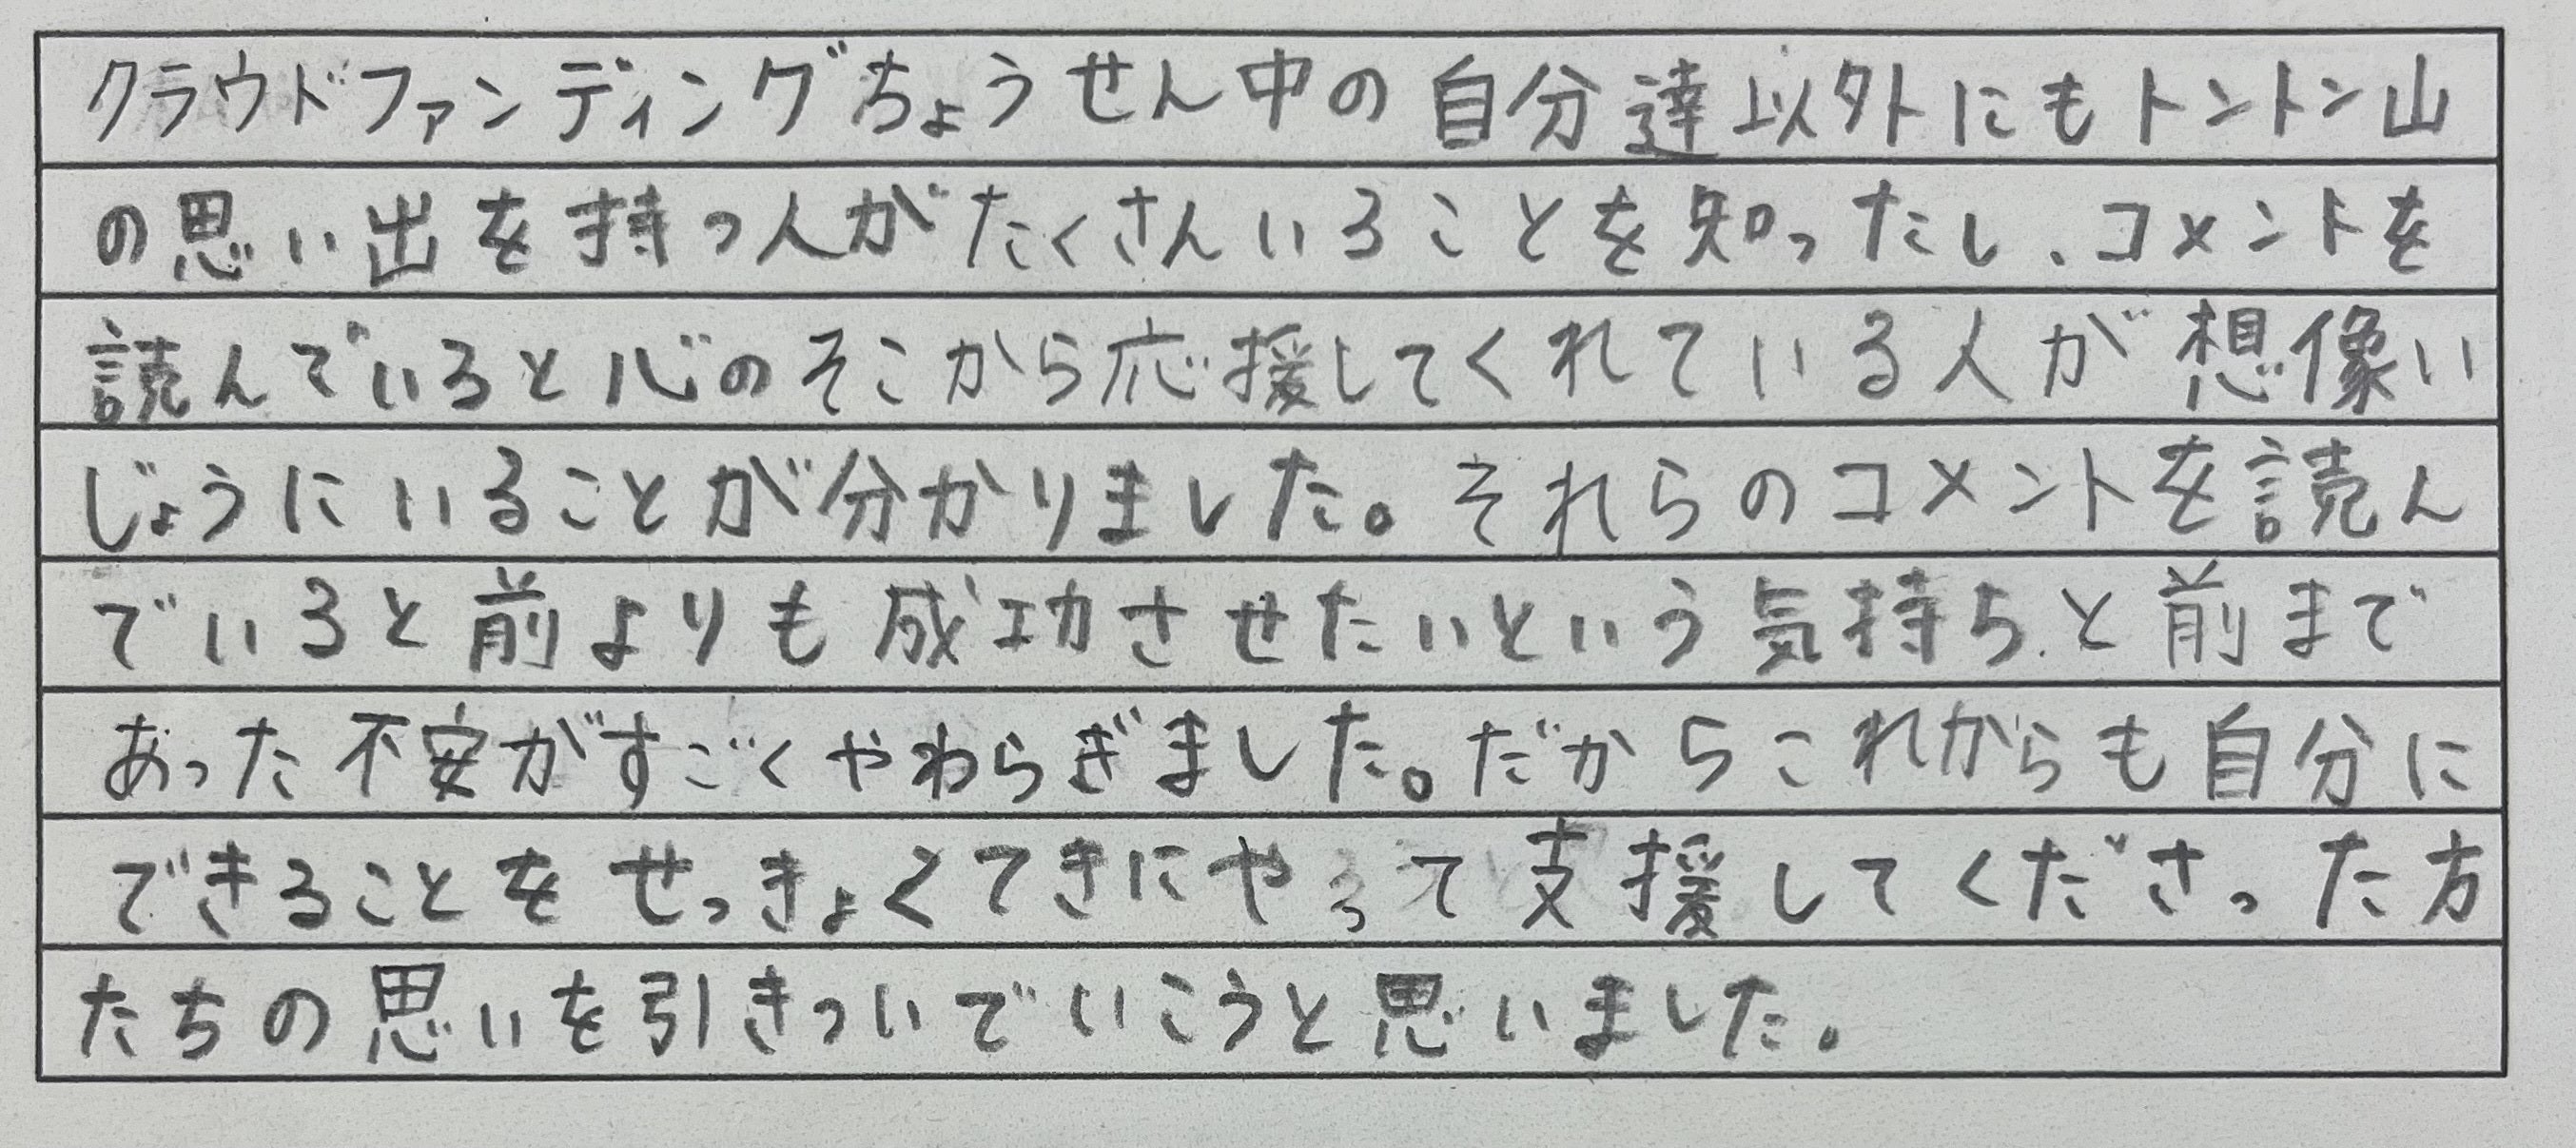 クラウドファンディングちょうせん中の自分達以外にもトントン山
の思い出を持つ人がたくさんいることを知ったし、コメントを
読んでいると心のそこから応援してくれている人が想像い
じょうにいることが分かりました。それらのコメントを読ん
でいると前よりも成功させたいという気持ちと前まで
あった不安がすごくやわらぎました。だからこれからも自分に
できることをせっきょくてきにやって支援してくださった方
たちの思いを引きついでいこうと思いました。